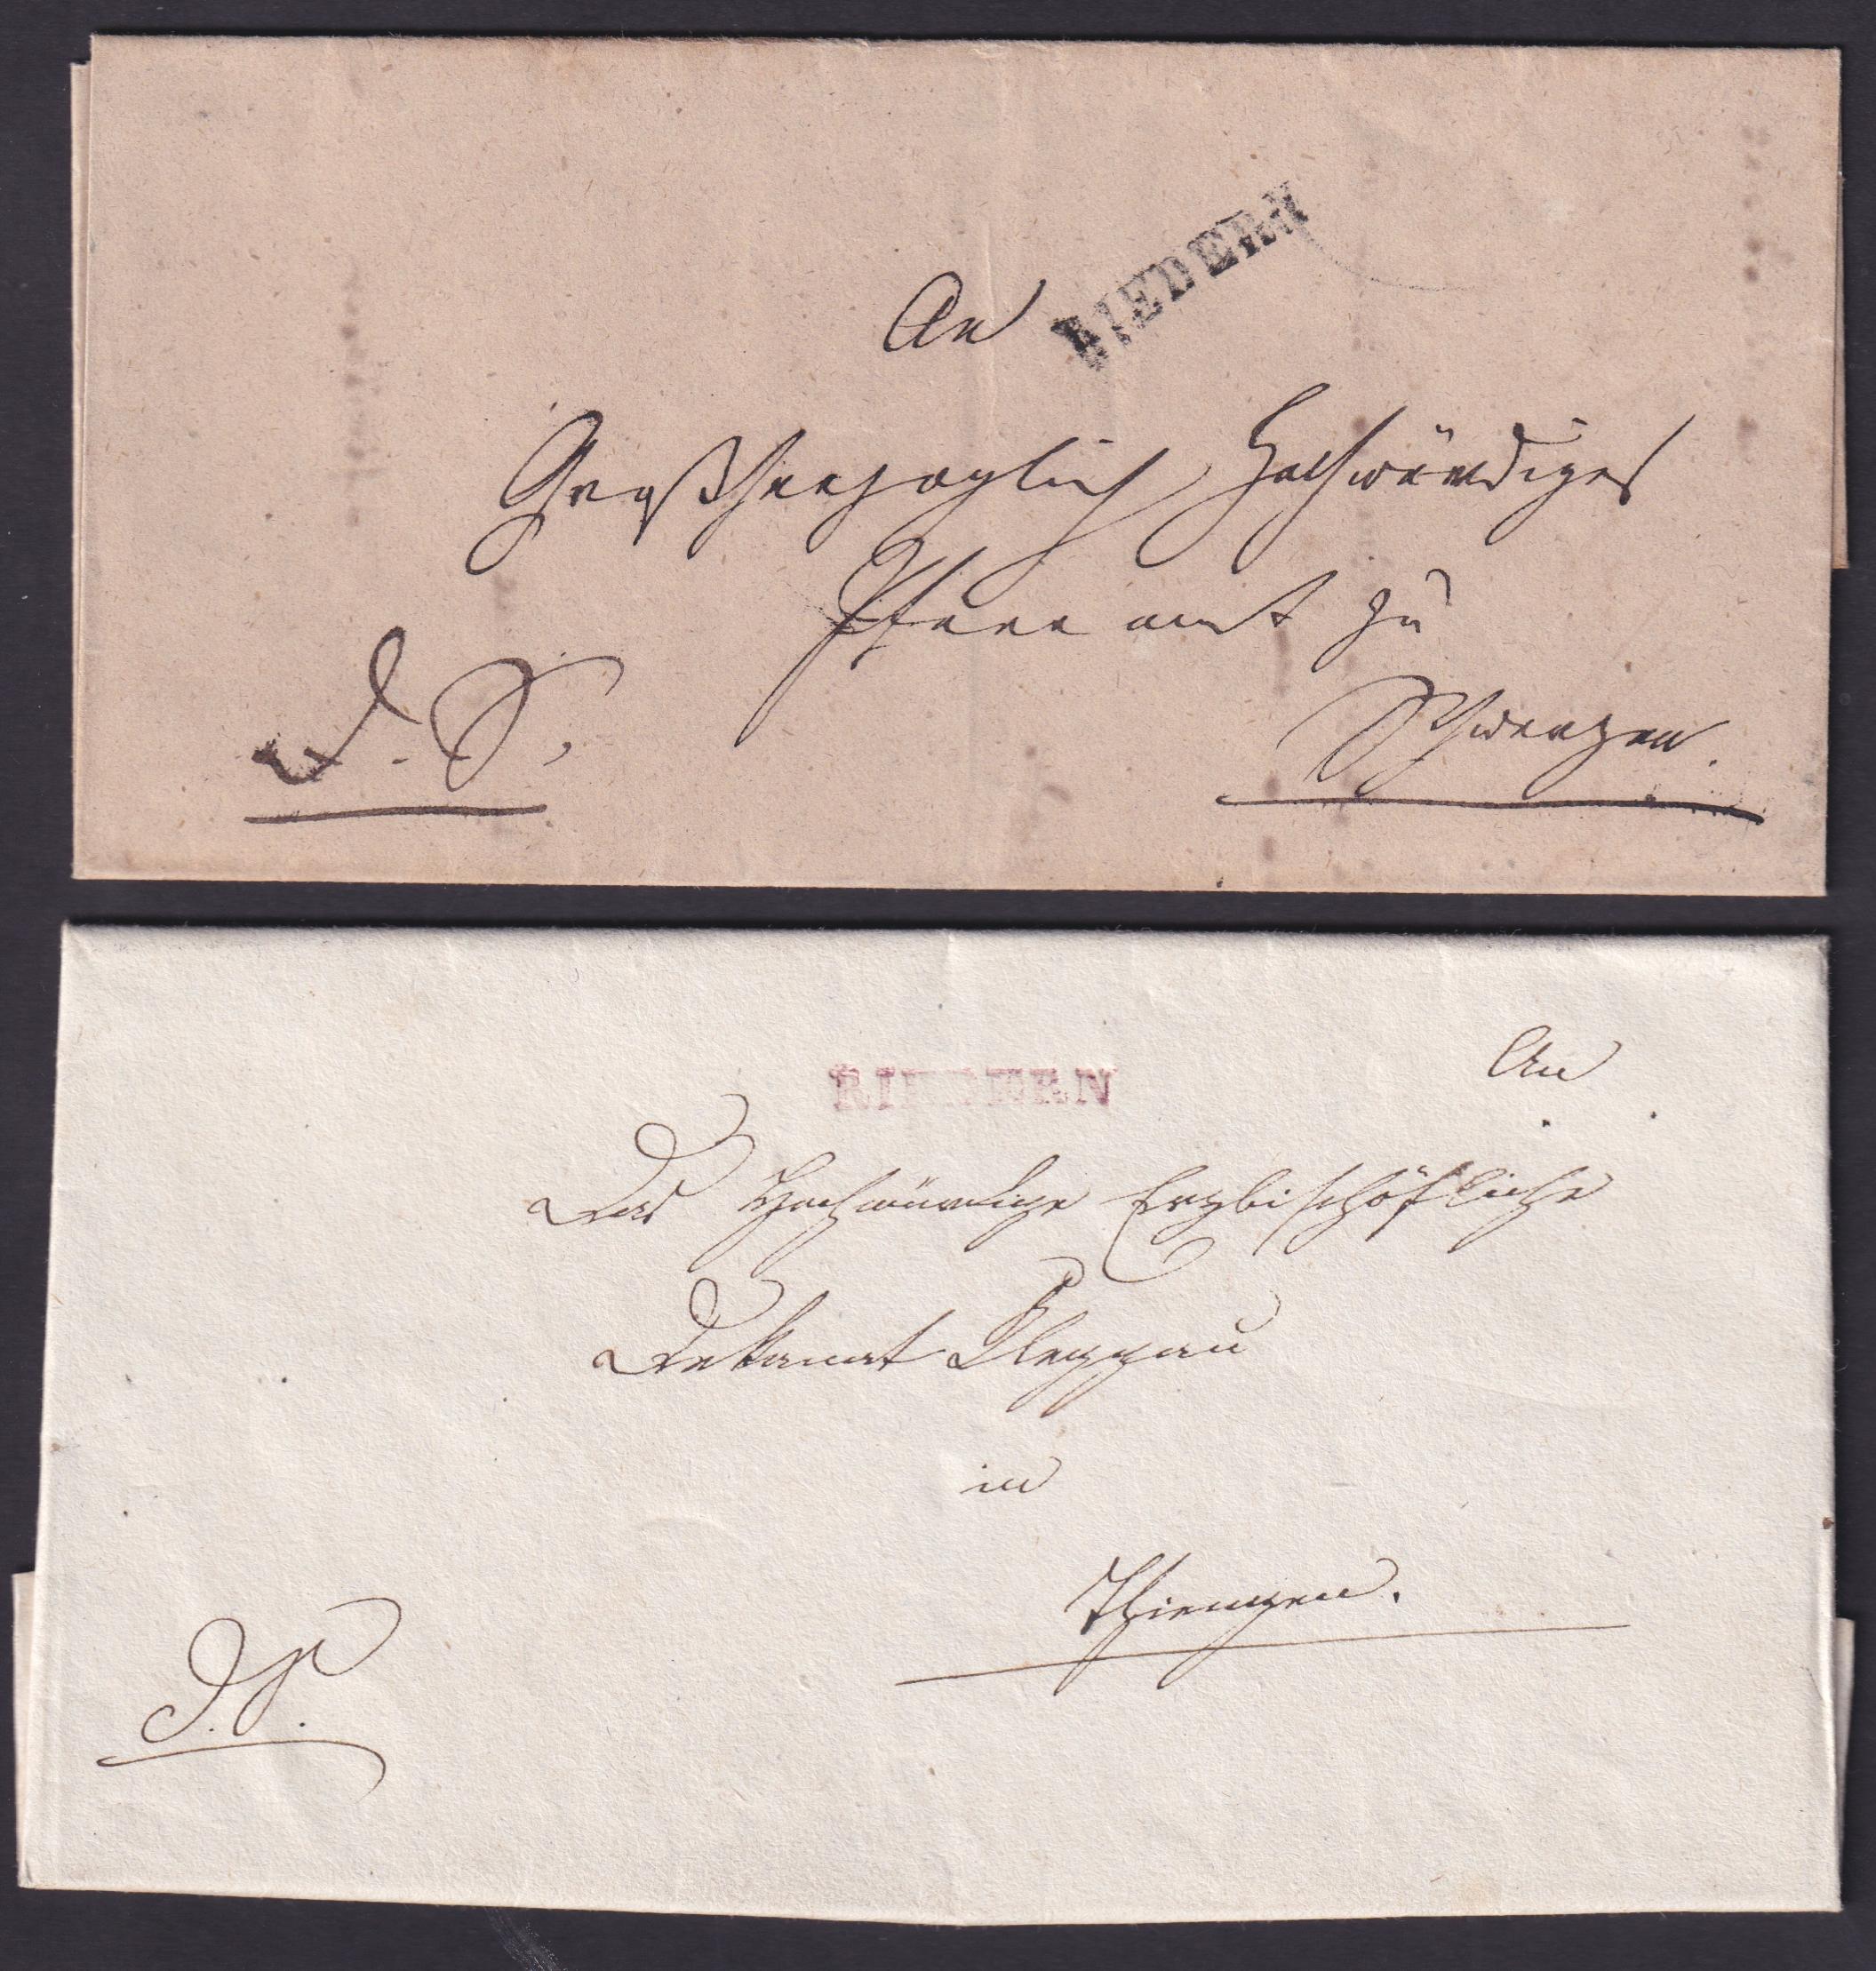 RIEDERN
An
Großherzoglich Hochwürdiges
Pfarramt zu
Schwerzen.
D. S.
RIEDERN
An
Das Hochwürdige Erzbischöfliche
Dekanat Kleggau
in
Thiengen.
D. S.